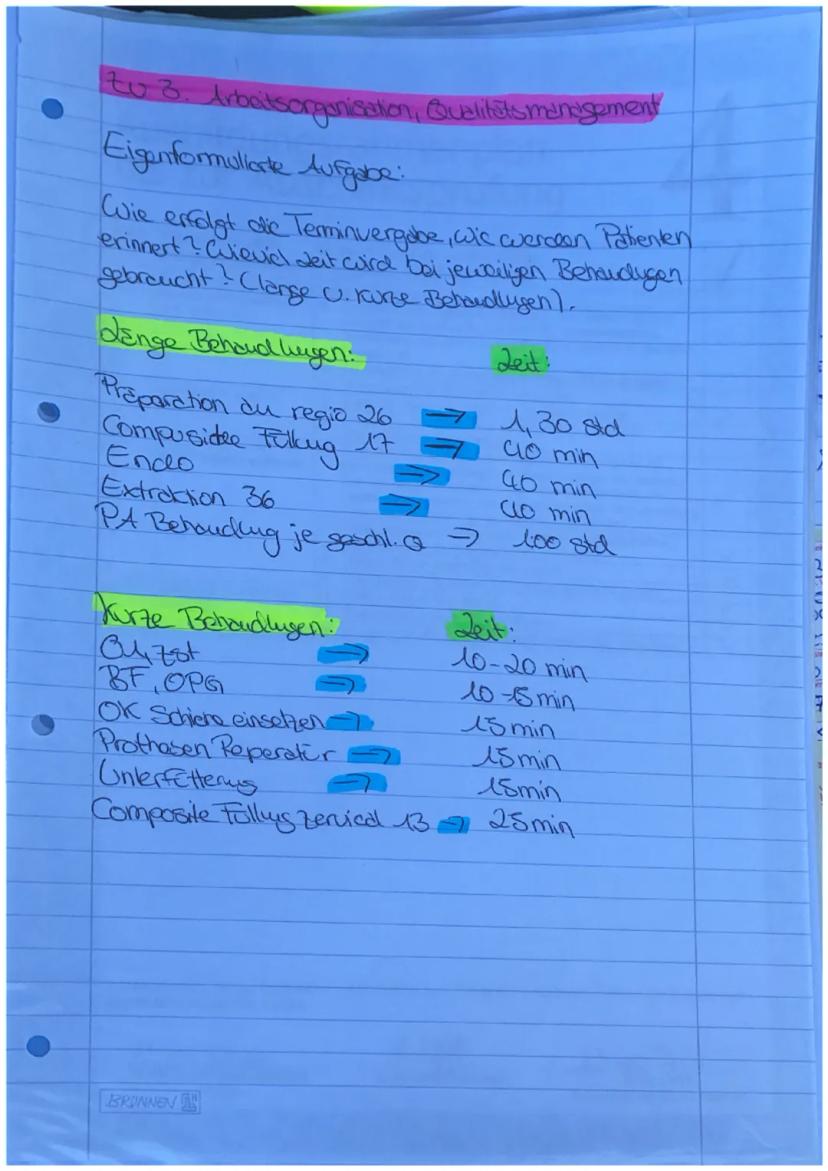 zu 3. Arbeitsorganisation, Qualitätsmanagement
Eigenformulierte Aufgabe:
Wie erfolgt die Terminvergabe, wie werden Patienten
erinnert? Wieviel Zeit wird bei jeweiligen Behandlugen
gebraucht? (lange u. kurze Behandlugen).
Länge Behandlugen: Zeit:
Präparation zu regio 26 → 1,30 std
Composite Füllug 17 → 40 min
Endo → 40 min
Extraktion 36 → 40 min
PA Behandlug je geschl. Q → 1.00 std
Kurze Behandlugen: Zeit:
01, zst → 10-20 min
BF, OPG → 10-15 min
OK Schiene einsetzen → 15min
Prothesen Reperatur → 15min
Unterfütterug → 15min
Composite Füllug zervical 13 → 25min
BRUNNEN